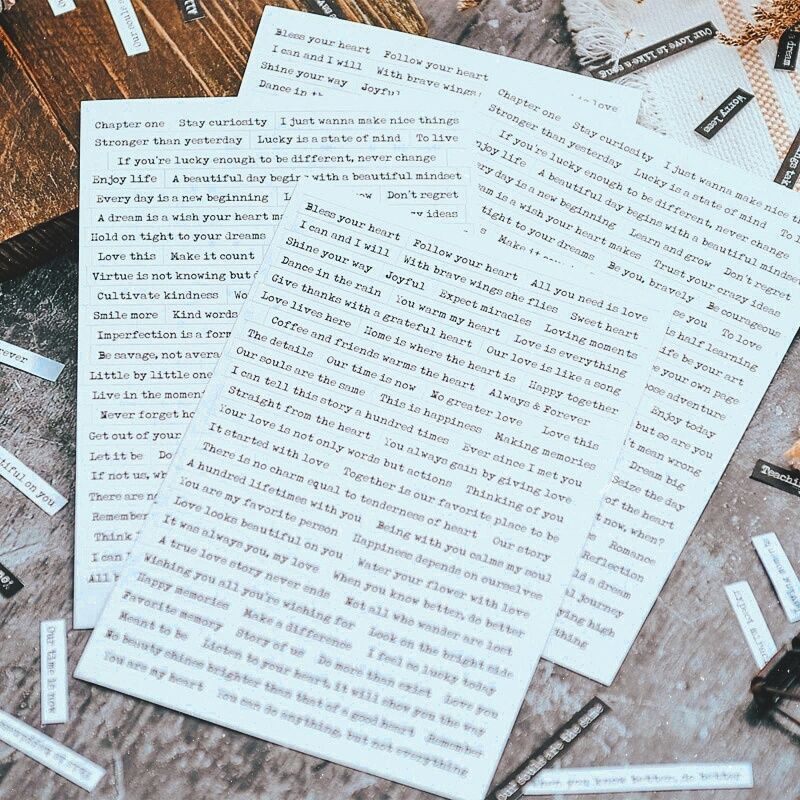 Bless your heart Follow your heart
I can and I will With brave wings
Shine your way Joyful
Dance in
love
Chapter one Stay curiosity I just wanna make nice things
Stronger than yesterday Lucky is a state of mind To live
If you're lucky enough to be different, never change
Enjoy life A beautiful day begins with a beautiful mindset
Every day is a new beginning Don't regret
A dream is a wish your heart ideas
Hold on tight to your dreams
Love this Make it count
Virtue is not knowing but
Cultivate kindness
Smile more Kind words
Imperfection is a form
Be savage, not
Little by little one
Live in the
Never forget
Get out of your
Let it be
If not us,
There are
Remember
Think
I can
All
Chapter one Stay curiosity I just wanna make nice
Stronger than yesterday Lucky is a state of mind To
If you're lucky enough to be different, never change
life A beautiful day begins with a beautiful mindset
day is a new beginning Learn and grow Don't regret
is a wish your heart makes Trust your crazy ideas
tight to your dreams Be you, bravely Be courageous
Make it you To love
is half learning
life be your art
your own page
adventure
Enjoy today
but so are you
mean wrong
Dream big
Seize the day
of the heart
now, when?
Romance
Reflection
a dream
journey
high
Bless your heart Follow your heart All you need is love
I can and I will With brave wings she flies Sweet heart
Shine your way Joyful Expect miracles Loving moments
Dance in the rain You warm my heart Love is everything
Give thanks with a grateful heart Our love is like a song
Love lives here Home is where the heart is Happy together
Coffee and friends warms the heart Always & Forever
The details Our time is now No greater love Love this
Our souls are the same This is happiness Making memories
I can tell this story a hundred times Ever since I met you
Straight from the heart You always gain by giving love
Your love is not only words but actions Thinking of you
It started with love Together is our favorite place to be
There is no charm equal to tenderness of heart Our story
A hundred lifetimes with you Being with you calms my soul
You are my favorite person Happiness depends on ourselves
Love looks beautiful on you Water your flower with love
It was always you, my love When you know better, do better
A true love story never ends Not all who wander are lost
Wishing you all you're wishing for Look on the bright side
Happy memories Make a difference I feel so lucky today
Favorite memory Story of us Do more than exist Love you
Meant to be Listen to your heart, it will show you the way
No beauty shines brighter than that of a good heart Remember
You are my heart You can do anything, but not everything
Our love is like a song
Worry less
dream
on you
Our time is now
when you know better, do better